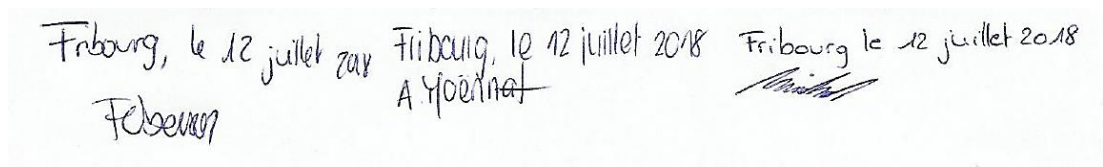 Fribourg, le 12 juillet 2018 Fribourg, le 12 juillet 2018 Fribourg le 12 juillet 2018
A